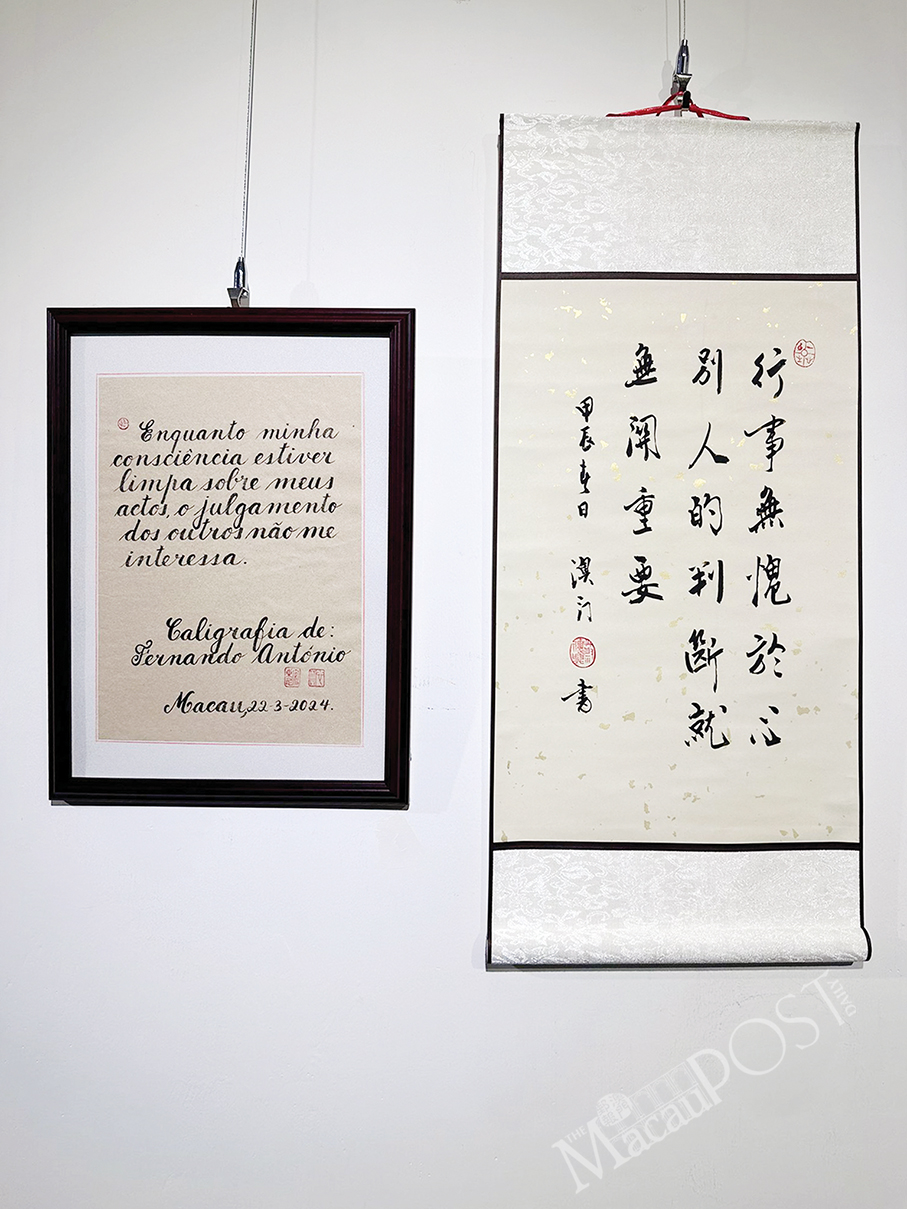 Enquanto minha
consciência estiver
limpa sobre meus
actos, o julgamento
dos outros não me
interessa.
Caligrafia de:
Fernando António
Macau, 22-3-2024.
行事無愧於心
別人的判斷就
無關重要
甲辰春日 澳门
書
THE
Macau POST
DAILY